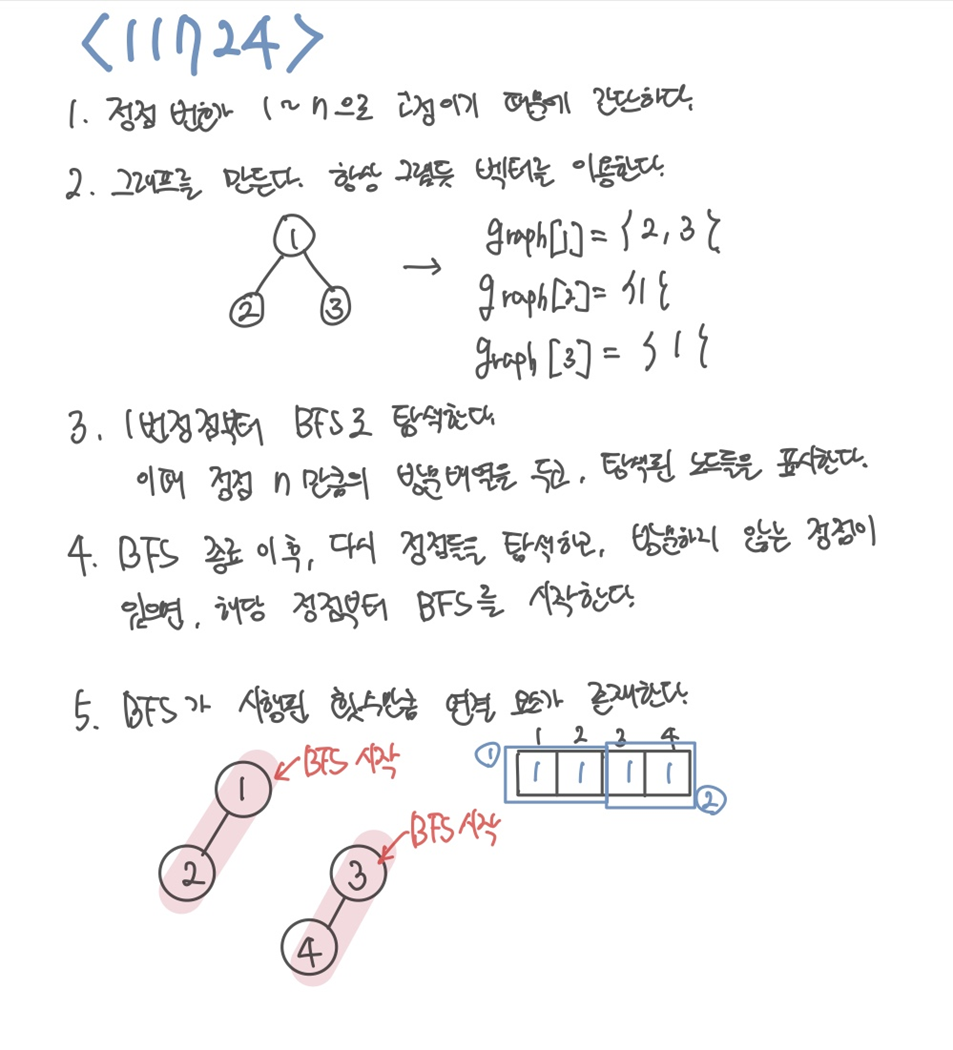 <11724>
1. 정점 번호가 1~n으로 고정이기 때문에 간단하다.
2. 그래프를 만든다. 항상 그렇듯 벡터를 이용한다.
1
2 3
→
graph[1] = {2, 3}
graph[2] = {1}
graph[3] = {1}
3. 1번정점부터 BFS로 탐색한다.
이때 정점 n만큼의 방문배열을 두고, 탐색된 노드들을 표시한다.
4. BFS 종료 이후, 다시 정점들을 탐색하고, 방문하지 않는 정점이
있으면, 해당 정점부터 BFS를 시작한다.
5. BFS가 시행된 횟수만큼 연결 요소가 존재한다.
1 2 3 4
① 1 1 1 1 ②
1 BFS 시작
2
3 BFS 시작
4